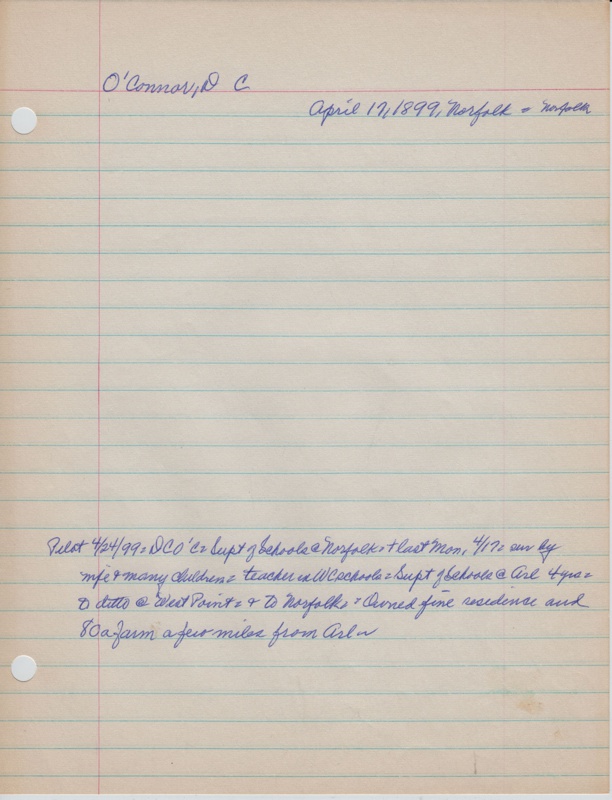 O'Connor, D C
April 17, 1899, Norfolk = Norfolk
Pilot 4/24/99 = DC O'C = Supt of Schools @ Norfolk = + last Mon, 4/17 = sur by
wife & many children = teacher in WC schools = Supt of Schools @ Arl 4 yrs =
to ditto @ West Point = & to Norfolk = Owned fine residence and
80 a farm a few miles from Arl